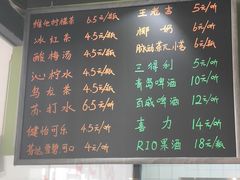 维他柠檬茶 6.5元/瓶
冰红茶 4.5元/瓶
酸梅汤 4.5元/瓶
沁柠水 4.5元/瓶
乌龙茶 4.5元/瓶
苏打水 6元/瓶
健怡可乐 4.5元/听
可口 4元/听
王老吉 5元/
椰奶 6元/
6元/
三得利 5元/
青岛啤酒 10元/
百威啤酒 12元/
喜力 14元/
RIO果酒 18元/瓶